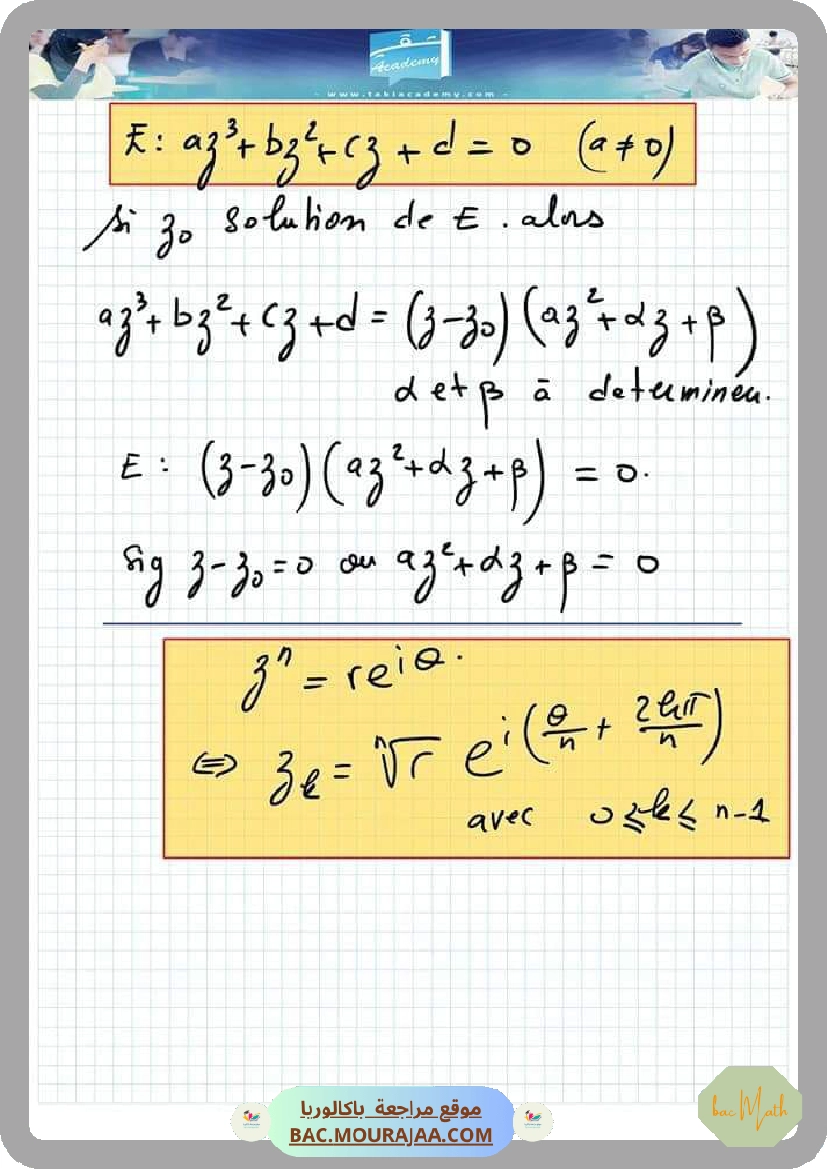 Academy
- www.takiacademy.com -
E : az³ + bz² + cz + d = 0 (a ≠ 0)
Si z₀ solution de E . alors
az³ + bz² + cz + d = (z - z₀) (az² + αz + β)
α et β à determiner.
E : (z - z₀) (az² + αz + β) = 0.
Sig z - z₀ = 0 ou az² + αz + β = 0
zⁿ = re^{iθ}.
⇔ z_k = ⁿ√r e^{i(θ/n + 2kπ/n)}
avec 0 ≤ k ≤ n-1
موقع مراجعة باكالوريا
BAC.MOURAJAA.COM
bac Math